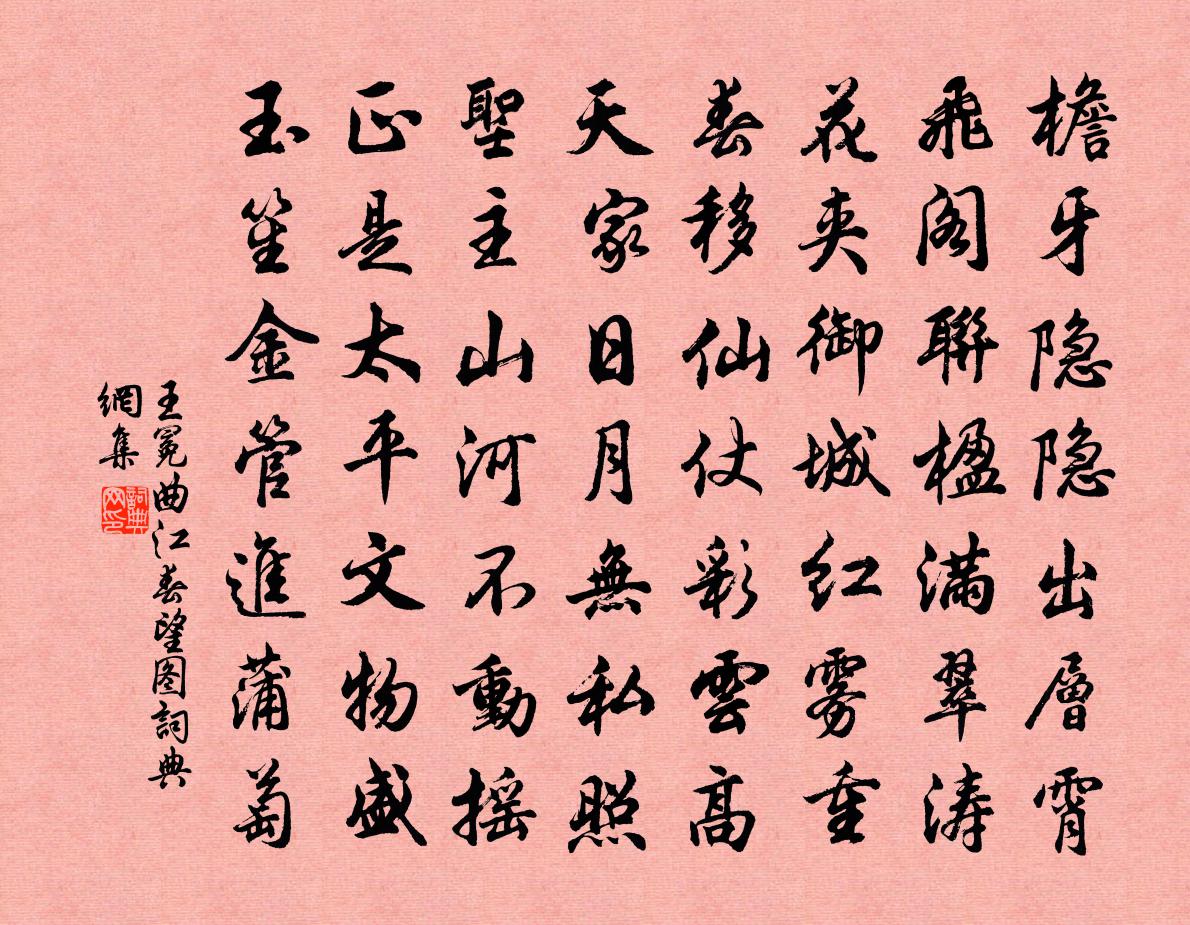 檐牙隐隐出層霄
飛阁聯楹满翠涛
花夹御城红雾重
春移仙仗彩雲高
天家日月無私照
聖主山河不動摇
正是太平文物盛
玉笙金管進蒲萄
王冕曲江春望图詞典
網集
詞典
网印